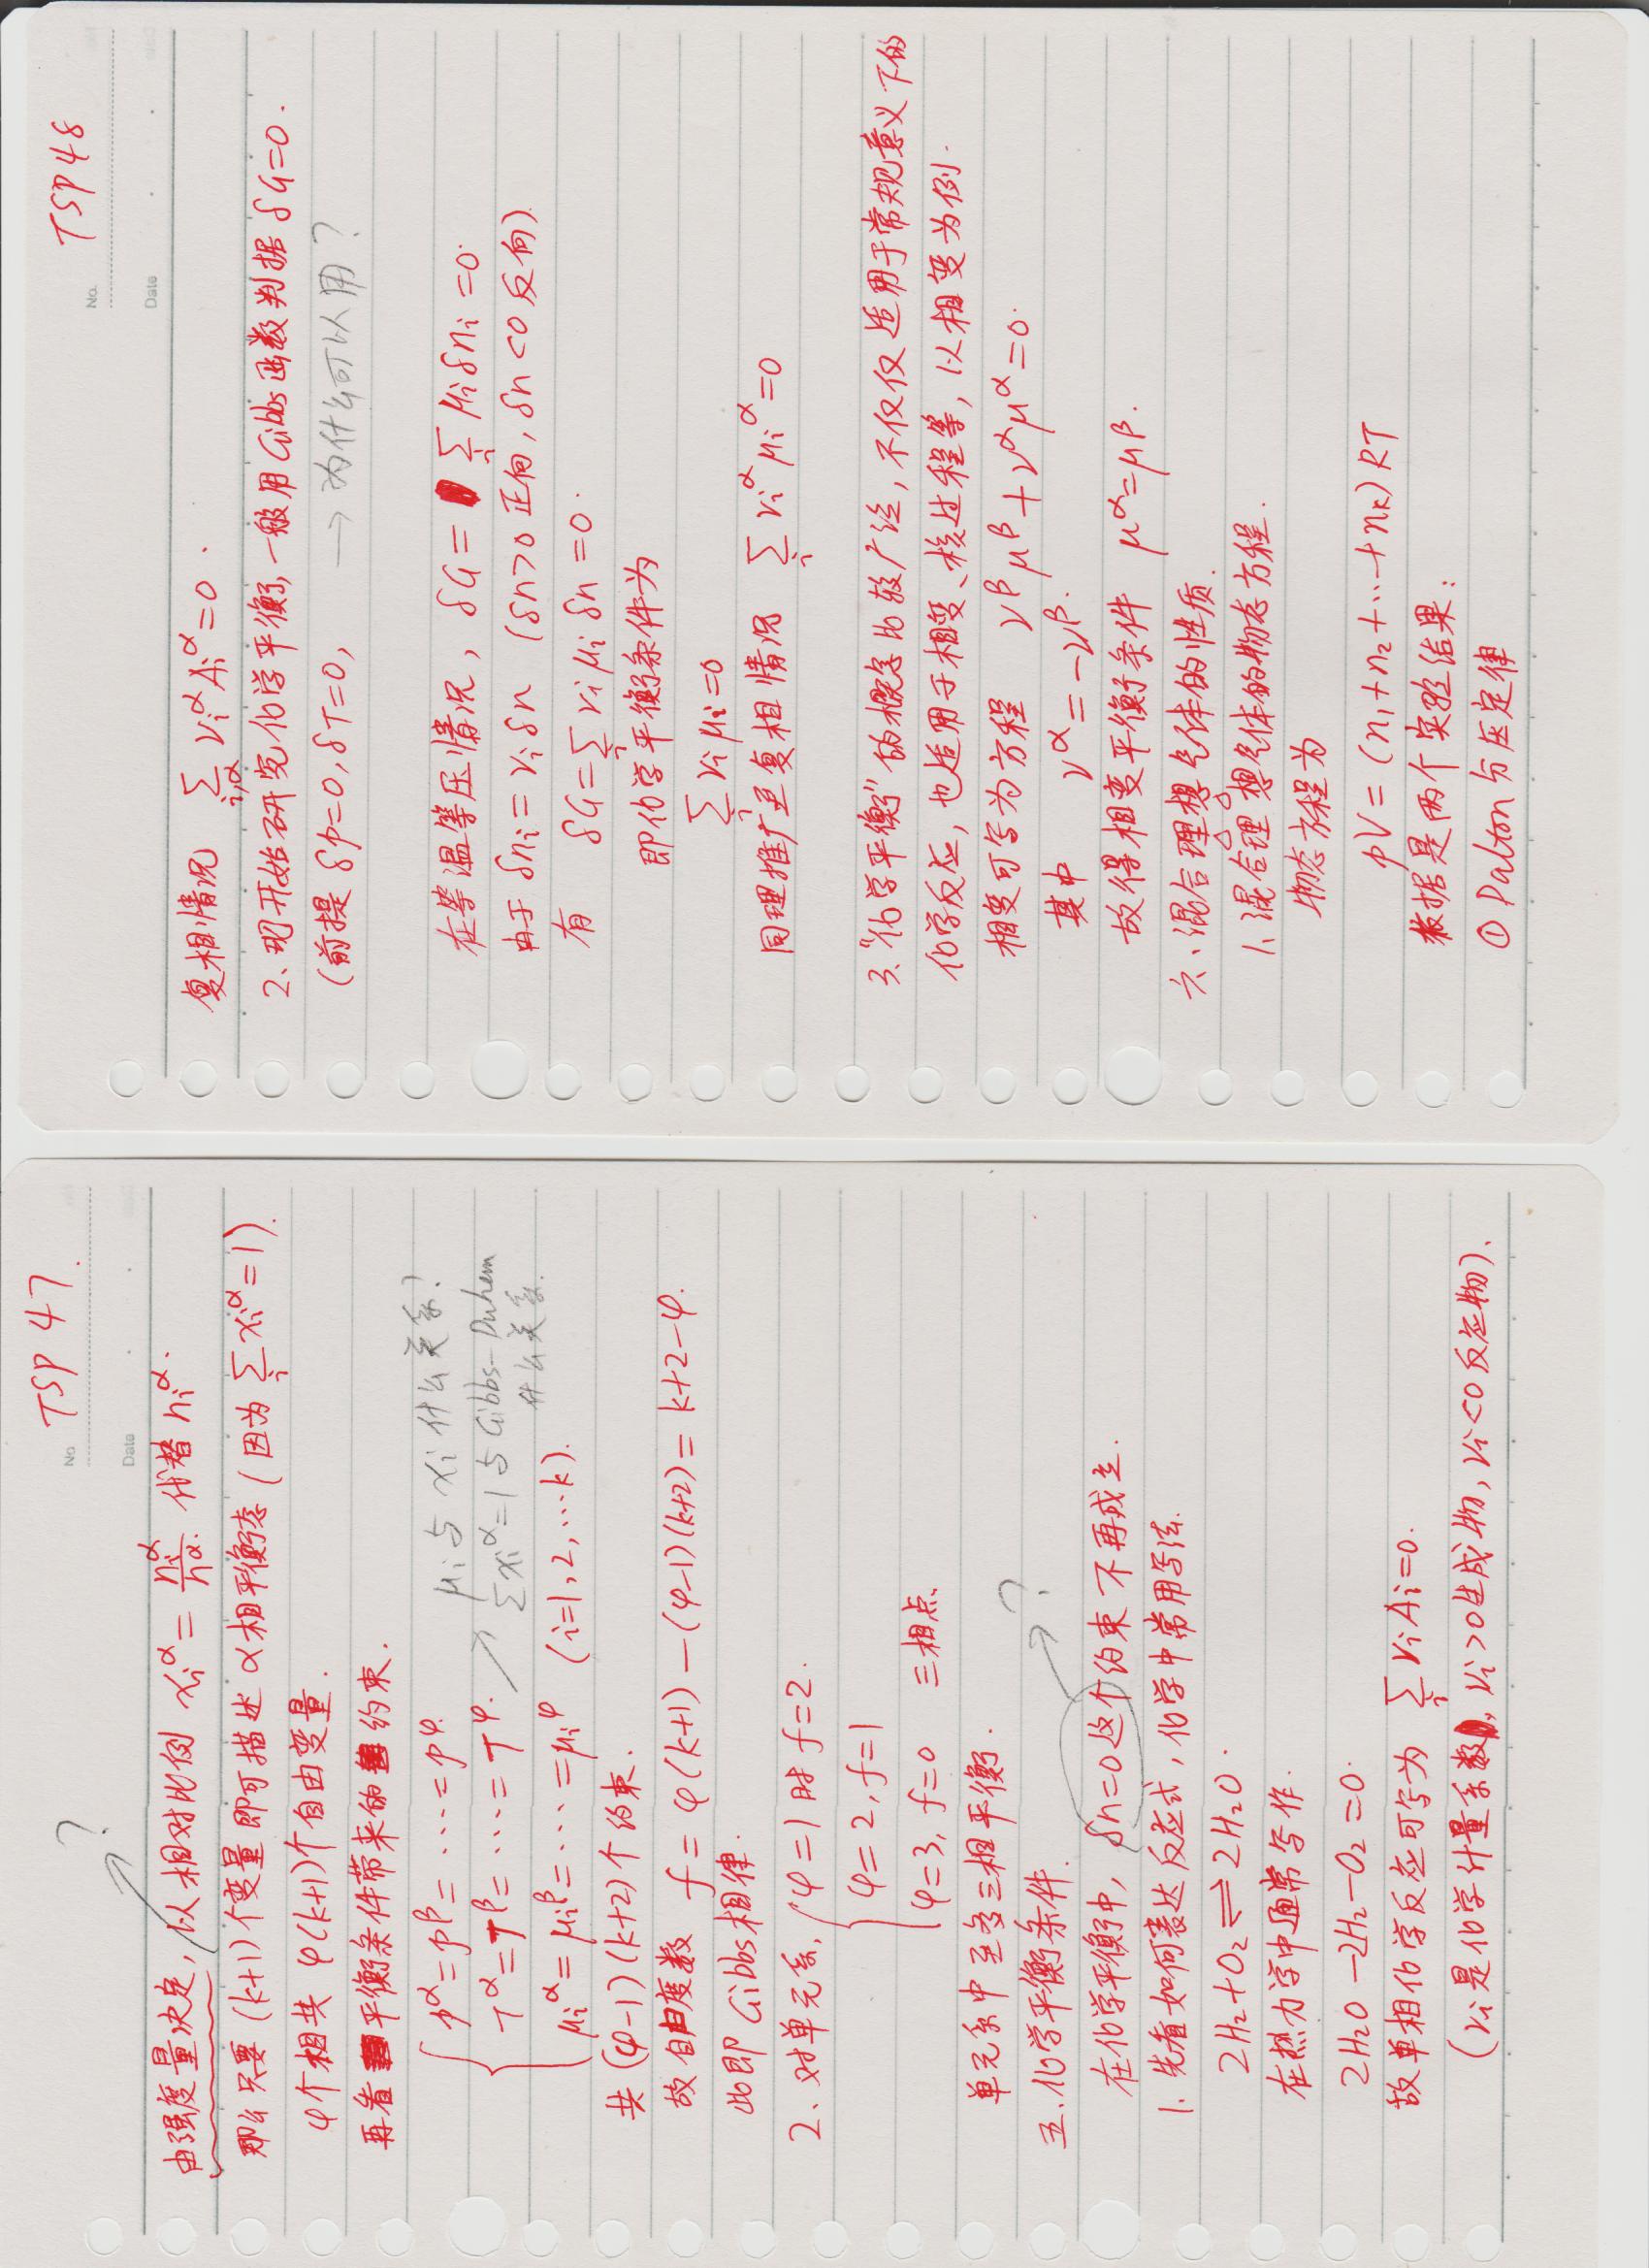 TSP 47.
No
Date
?
由强度量决定, 以相对比例 xᵢ^α = nᵢ^α / n^α. 代替 nᵢ^α.
那么只要 (k+1) 个变量即可描述 α 相平衡态 (因为 Σᵢ xᵢ^α = 1).
φ个相共 φ(k+1)个自由变量.
再看平衡条件带来的约束.
p^α = p^β = ⋯ = p^φ.
T^α = T^β = ⋯ = T^φ.
μᵢ^α = μᵢ^β = ⋯ = μᵢ^φ (i=1,2,⋯k).
μᵢ与 xᵢ 什么关系?
Σxᵢ^α=1与Gibbs-Duhem
什么关系.
共 (φ-1)(k+2)个约束.
故自由度数 f = φ(k+1) - (φ-1)(k+2) = k+2-φ.
此即 Gibbs相律.
2、对单元系, φ=1时 f=2.
φ=2, f=1
φ=3, f=0 三相点
单元系中至多三相平衡.
五.化学平衡条件.
?
在化学平衡中, δn=0这个约束不再成立.
1. 先看如何表达反应式, 化学中常用写法.
2H₂+O₂⇌2H₂O.
在热力学中通常写作.
2H₂O-2H₂-O₂=0.
故单相化学反应可写为 Σᵢ νᵢAᵢ=0.
(νᵢ是化学计量系数, νᵢ>0生成物, νᵢ<0反应物).
TSP48
No.
Date
复相情况 Σ_{i,α} νᵢ^α Aᵢ^α = 0.
2、现开始研究化学平衡, 一般用Gibbs函数判据 δG=0.
(前提 δp=0, δT=0, → 为什么可以用?
在等温等压情况, δG = Σᵢ μᵢδnᵢ = 0.
由于 δnᵢ = νᵢδn (δn>0 正向, δn<0 反向).
有 δG = Σᵢ νᵢμᵢδn = 0.
即化学平衡条件为
Σᵢ νᵢμᵢ=0
同理推广至复相情况 Σᵢ νᵢ^α μᵢ^α = 0
3."化学平衡"的概念比较广泛, 不仅仅适用于常规意义下的
化学反应, 也适用于相变、核过程等, 以相变为例.
相变可写为方程 ν^β μ^β + ν^α μ^α = 0.
其中 ν^α = -ν^β.
故得相变平衡条件 μ^α = μ^β.
六、混合理想气体的性质.
1、混合理想气体的物态方程.
物态方程为
pV = (n₁+n₂+⋯+nₖ)RT
根据是两个实验结果:
① Dalton分压定律